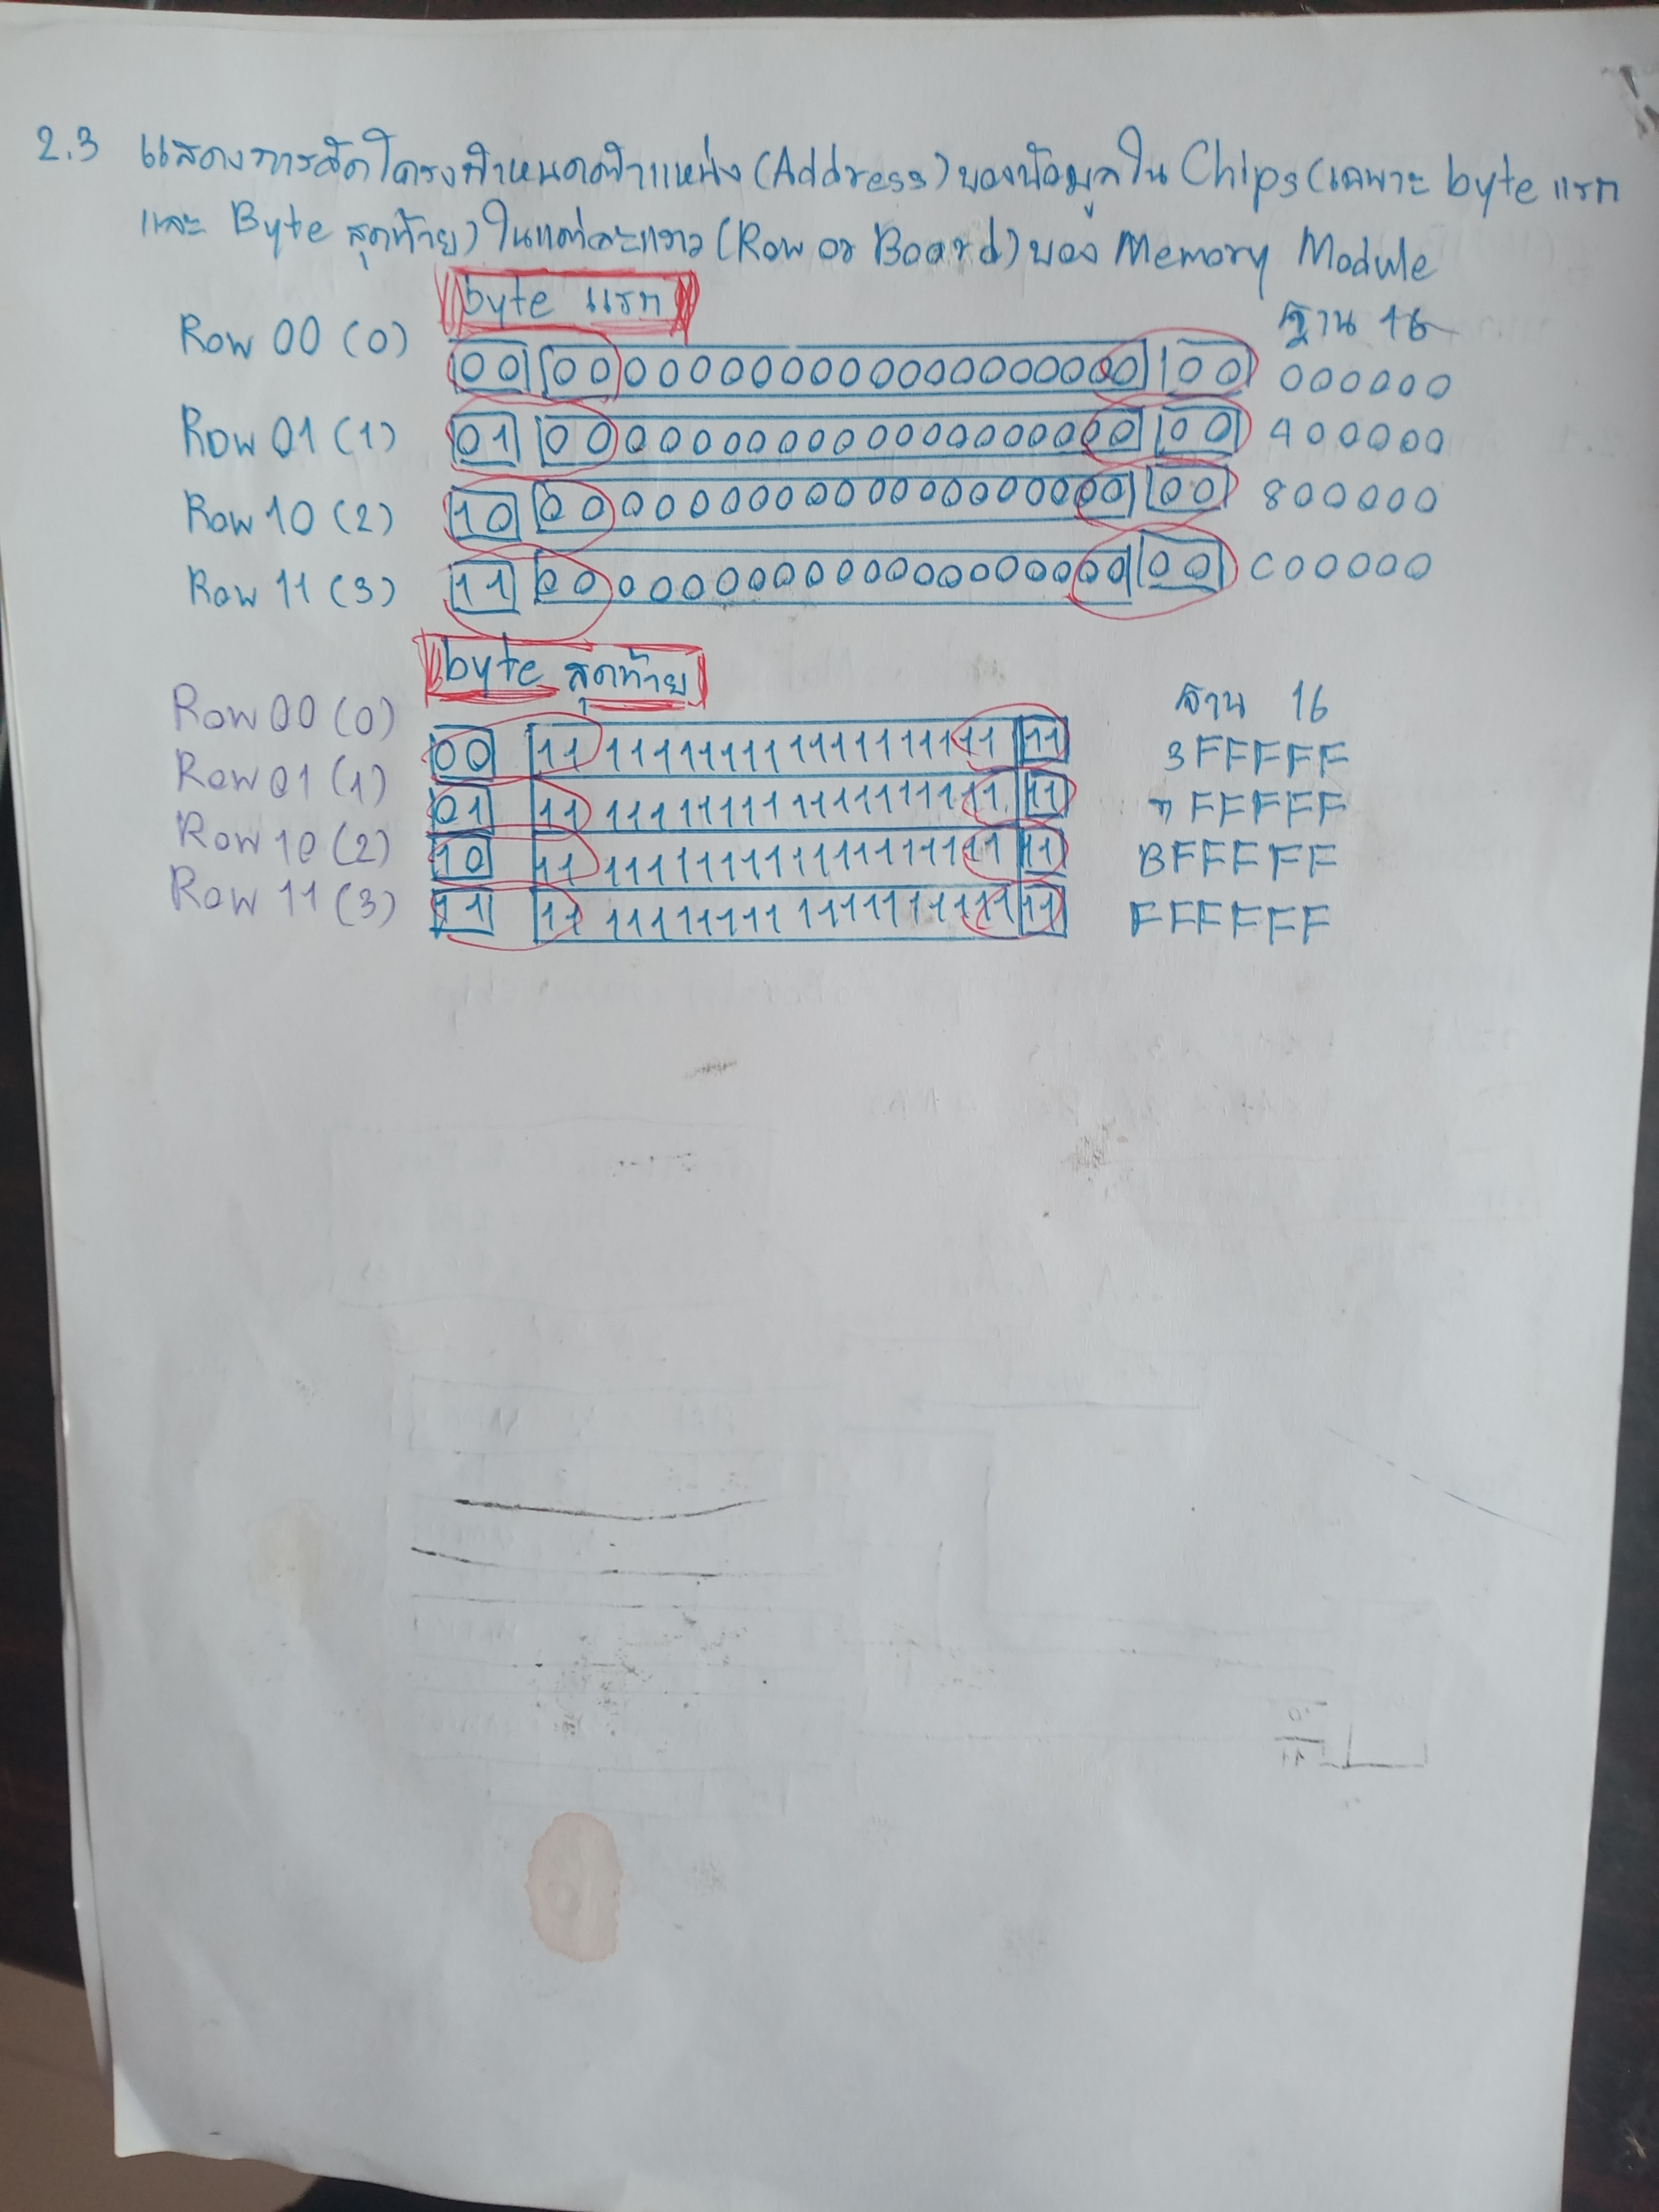 2.3 แสดงการจัดโครงกำหนดตำแหน่ง (Address) ของข้อมูลใน Chips (เฉพาะ byte แรก
และ Byte สุดท้าย) ในแต่ละแถว (Row or Board) ของ Memory Module
byte แรก
ฐาน 16
Row 00 (0) 00 00000000000000000000 00 000000
Row 01 (1) 01 00000000000000000000 00 400000
Row 10 (2) 10 00000000000000000000 00 800000
Row 11 (3) 11 00000000000000000000 00 C00000
byte สุดท้าย
ฐาน 16
Row 00 (0) 00 11111111111111111111 11 3FFFFF
Row 01 (1) 01 11111111111111111111 11 7FFFFF
Row 10 (2) 10 11111111111111111111 11 BFFFFF
Row 11 (3) 11 11111111111111111111 11 FFFFFF